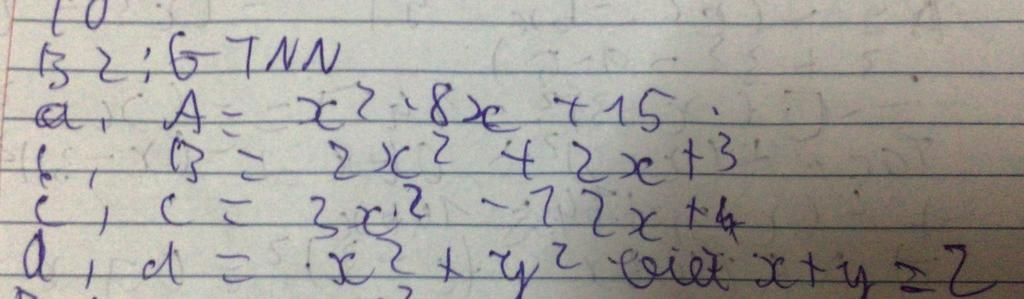 10
B2: GTNN
a, A = x² - 8x + 15.
b, B = 2x² + 2x + 3
c, C = 3x² - 12x + 4
d, d = x² + y² biết x + y = 2